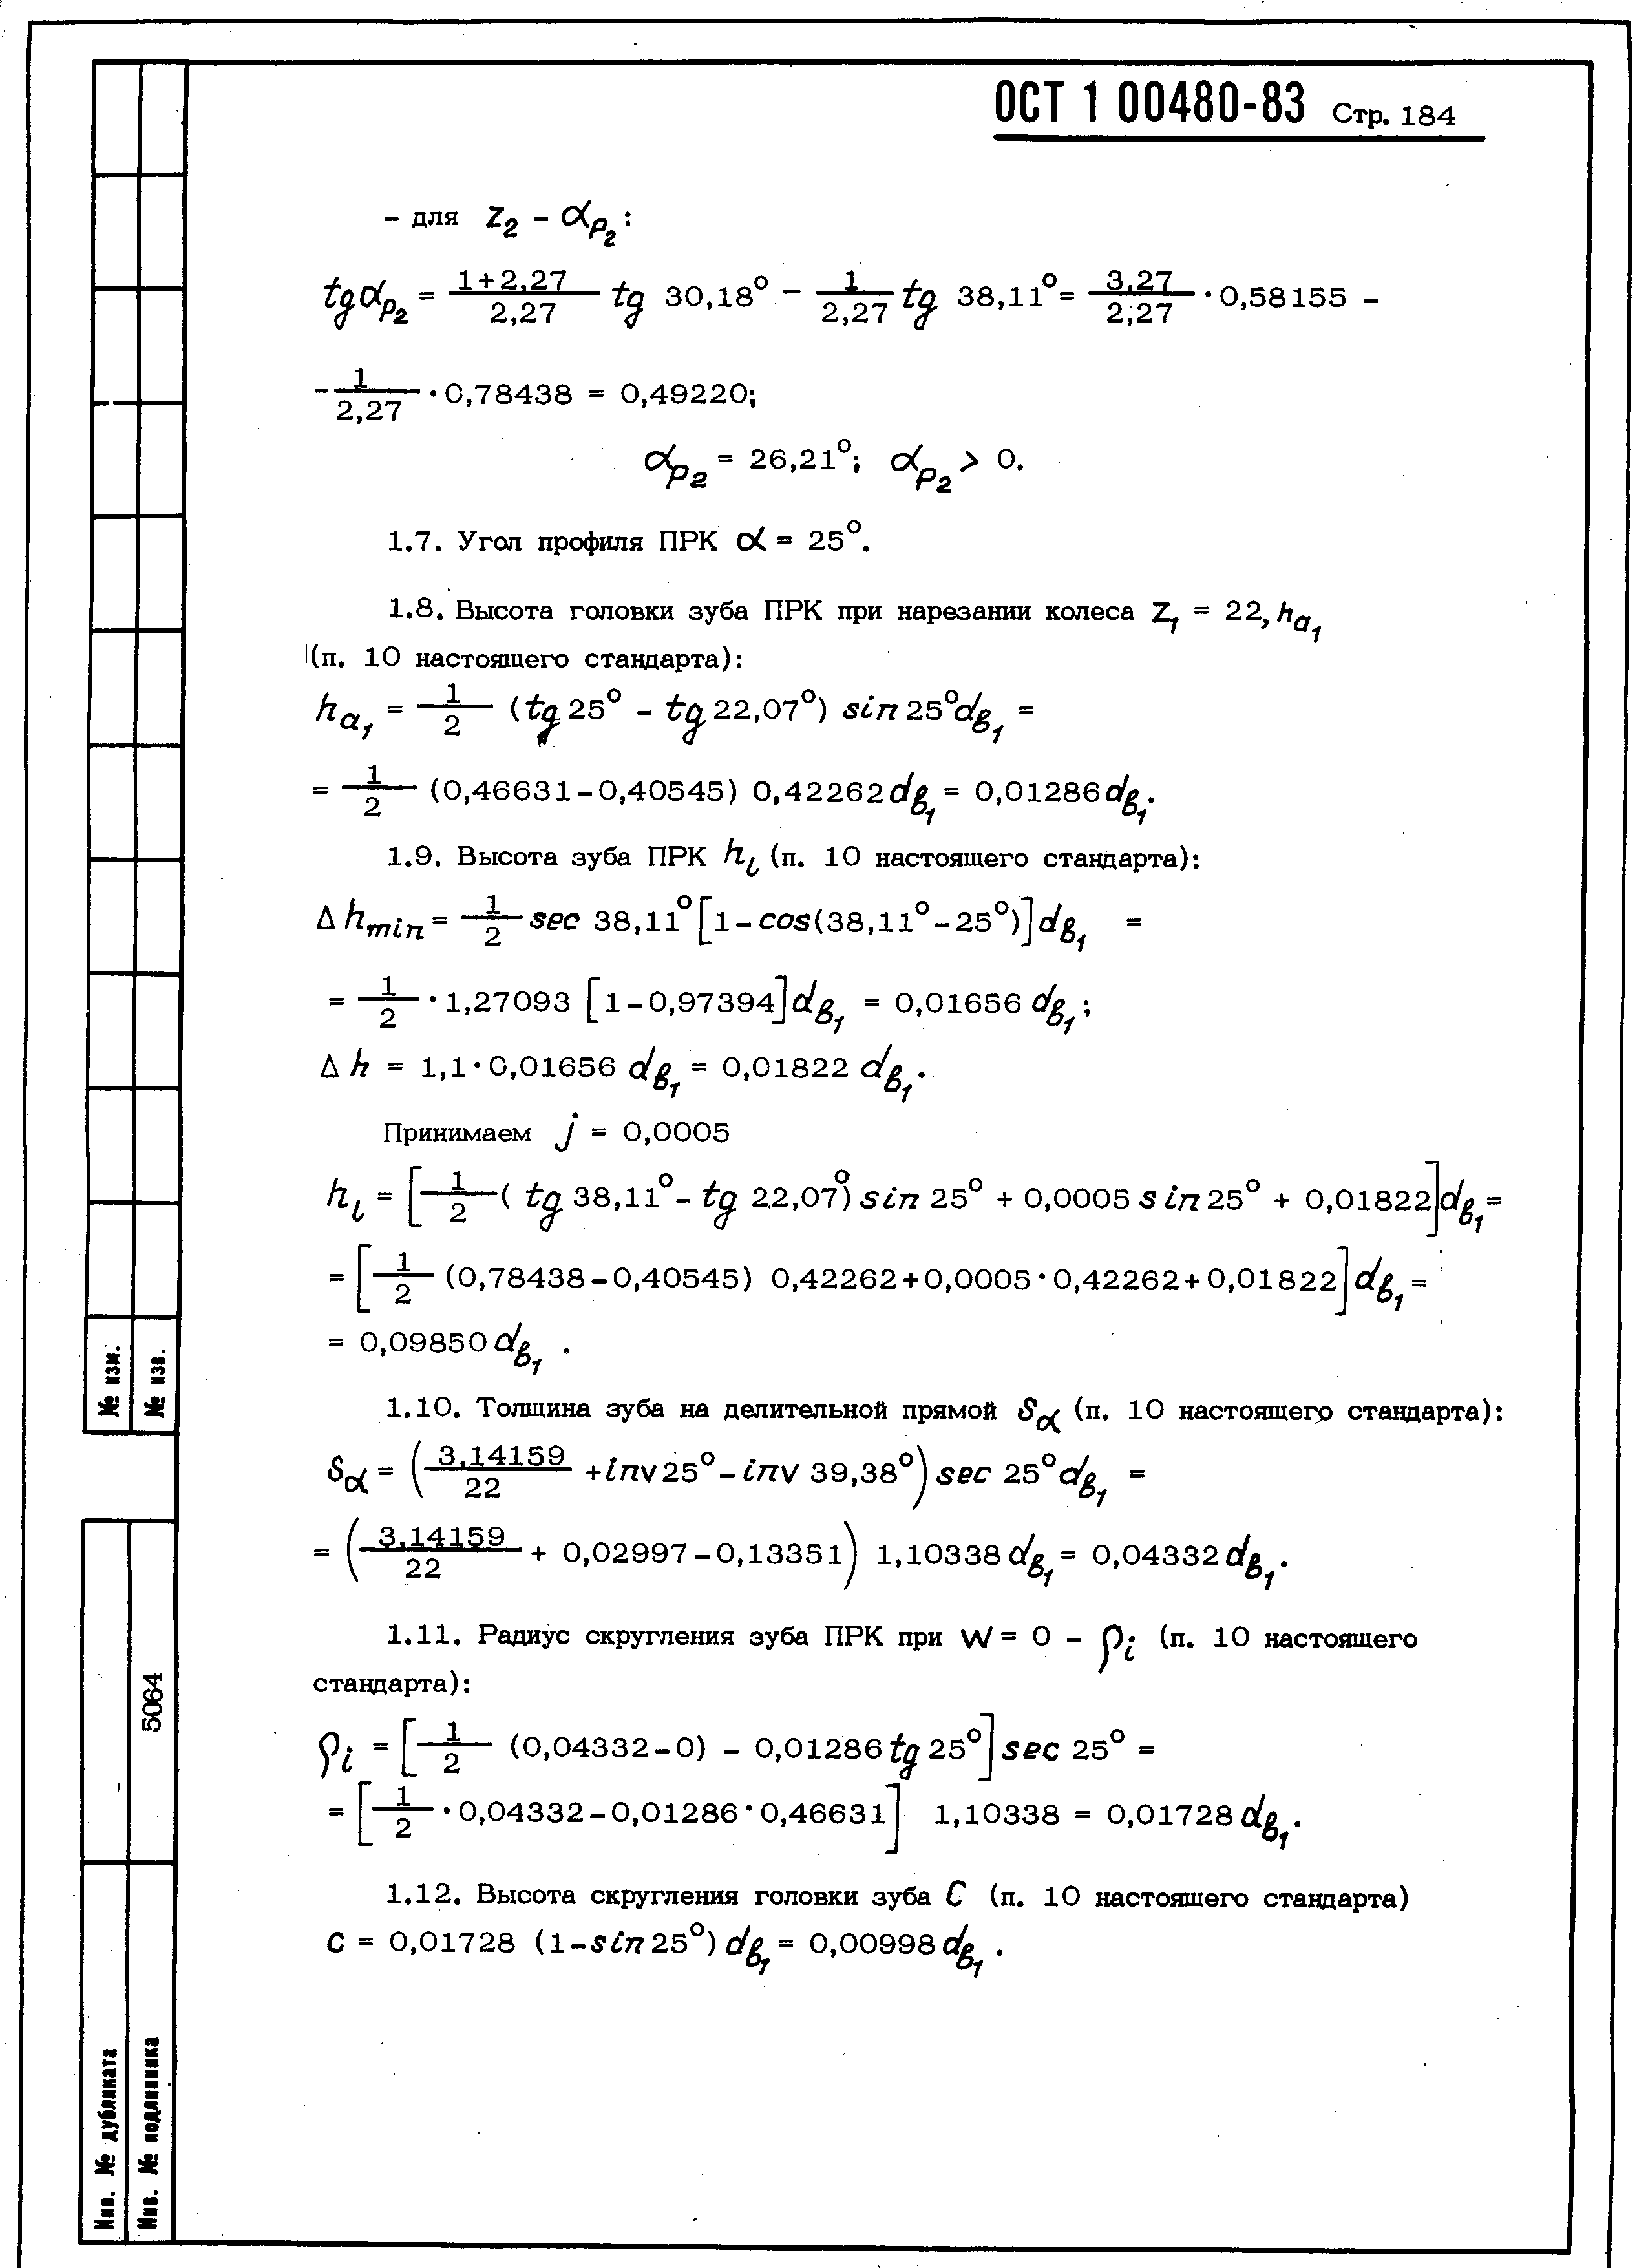 ОСТ 1 00480-83 Стр. 184
- для z₂ - α_p₂:
tg α_p₂ = (1+2,27)/2,27 tg 30,18° - 1/2,27 tg 38,11° = 3,27/2,27 · 0,58155 -
- 1/2,27 · 0,78438 = 0,49220;
α_p₂ = 26,21°; α_p₂ > 0.
1.7. Угол профиля ПРК α = 25°.
1.8. Высота головки зуба ПРК при нарезании колеса z₁ = 22, h_a₁
(п. 10 настоящего стандарта):
h_a₁ = 1/2 (tg 25° - tg 22,07°) sin 25° d_в₁ =
= 1/2 (0,46631-0,40545) 0,42262 d_в₁ = 0,01286 d_в₁.
1.9. Высота зуба ПРК h_i (п. 10 настоящего стандарта):
Δ h_min = 1/2 sec 38,11° [1-cos(38,11°-25°)] d_в₁ =
= 1/2 · 1,27093 [1-0,97394] d_в₁ = 0,01656 d_в₁;
Δ h = 1,1 · 0,01656 d_в₁ = 0,01822 d_в₁.
Принимаем j = 0,0005
h_i = [1/2 (tg 38,11° - tg 22,07°) sin 25° + 0,0005 sin 25° + 0,01822] d_в₁ =
= [1/2 (0,78438-0,40545) 0,42262+0,0005·0,42262+0,01822] d_в₁ =
= 0,09850 d_в₁.
1.10. Толщина зуба на делительной прямой s_α (п. 10 настоящего стандарта):
s_α = (3,14159/22 + inv 25° - inv 39,38°) sec 25° d_в₁ =
= (3,14159/22 + 0,02997-0,13351) 1,10338 d_в₁ = 0,04332 d_в₁.
1.11. Радиус скругления зуба ПРК при W = 0 - ρ_i (п. 10 настоящего
стандарта):
ρ_i = [1/2 (0,04332-0) - 0,01286 tg 25°] sec 25° =
= [1/2 · 0,04332-0,01286·0,46631] 1,10338 = 0,01728 d_в₁.
1.12. Высота скругления головки зуба C (п. 10 настоящего стандарта)
C = 0,01728 (1-sin 25°) d_в₁ = 0,00998 d_в₁.
№ изм.
№ изв.
5064
Инв. № дубликата
Инв. № подлинника